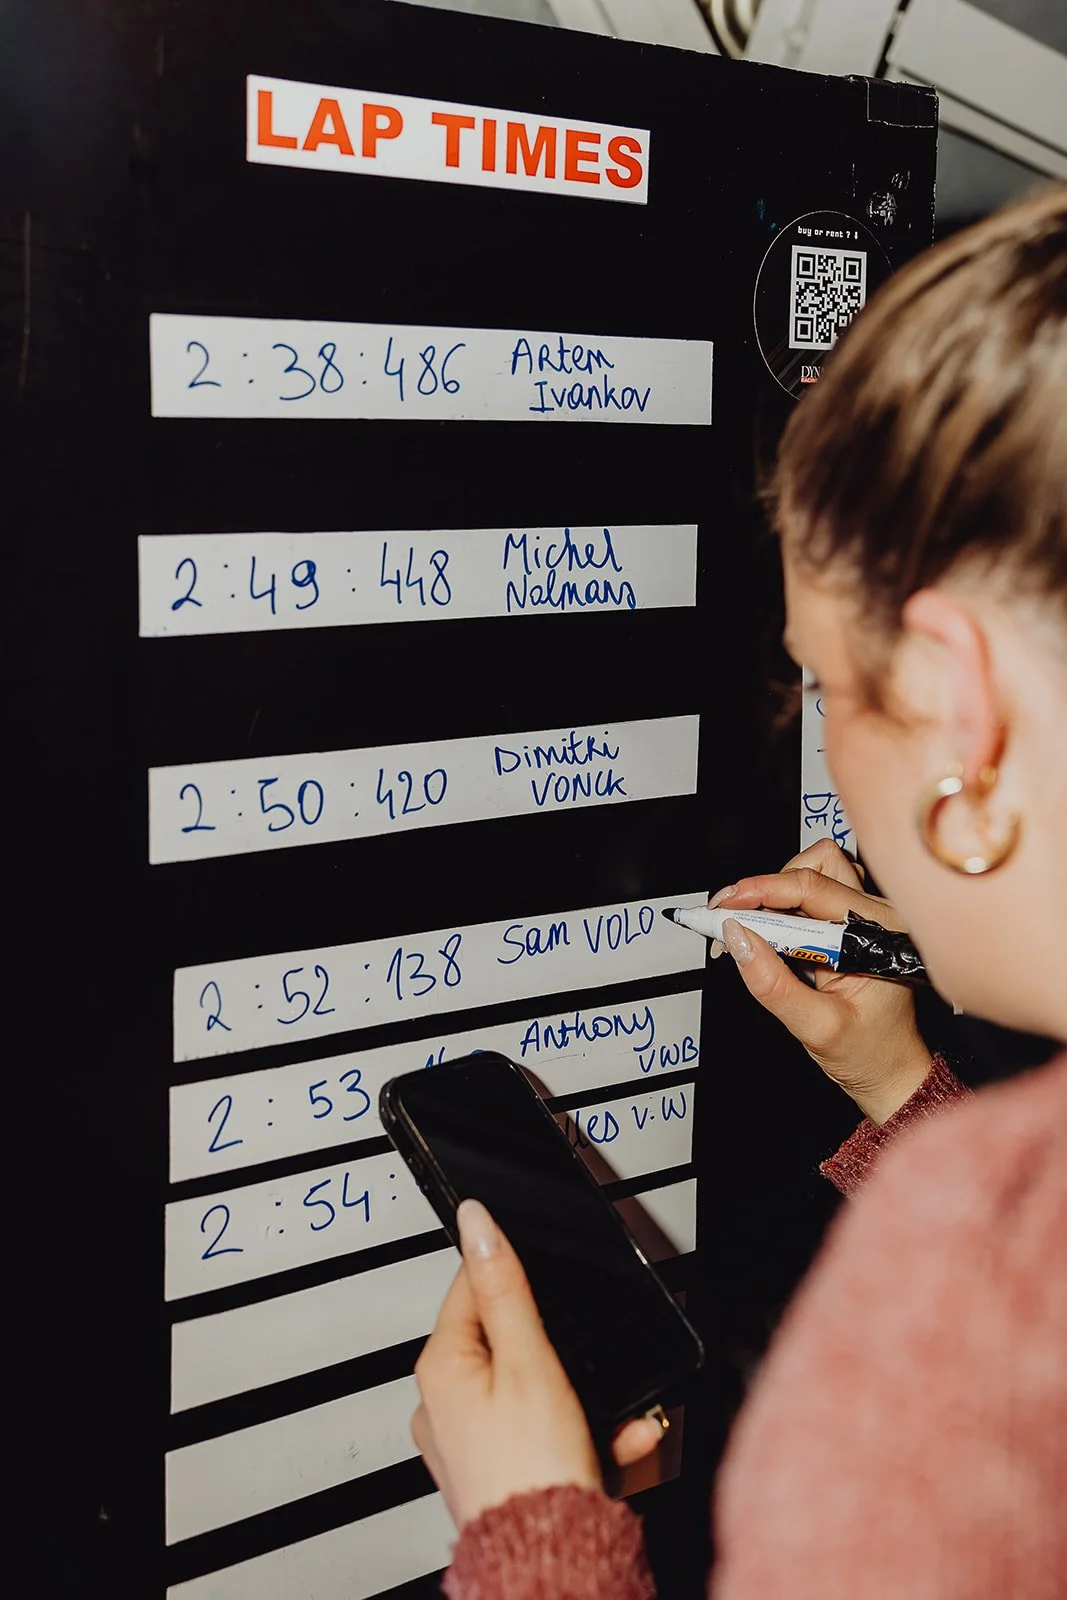 LAP TIMES
buy or rent ?
2 : 38 : 486 Artem
Ivankov
2 : 49 : 448 Michel
Nalmans
2 : 50 : 420 Dimitri
VONCK
2 : 52 : 138 Sam VOLO
2 : 53 Anthony
VWB
2 : 54 : V.W
DE
BIC